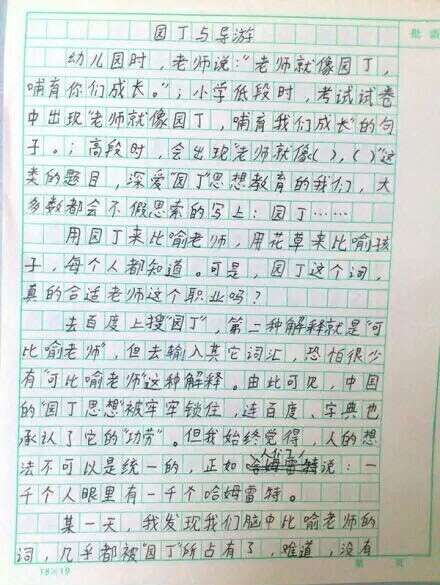 园丁与导游
幼儿园时，老师说："老师就像园丁，
哺育你们成长。"；小学低段时，考试试卷
中出现"老师就像园丁，哺育我们成长"的句
子。；高段时，会出现"老师就像( )，( )"这
类的题目，深爱"园丁"思想教育的我们，大
多数都会不假思索的写上：园丁……
用园丁来比喻老师，用花草来比喻孩
子，每个人都知道。可是，园丁这个词，
真的合适老师这个职业吗？
去百度上搜"园丁"，第二种解释就是"可
比喻老师"，但去输入其它词汇，恐怕很少
有"可比喻老师"这种解释。由此可见，中国
的"园丁思想"被牢牢锁住，连百度、字典也
承认了它的"功劳"。但我始终觉得，人的想
法不可以是统一的，正如人们说：一
千个人眼里有一千个哈姆雷特。
某一天，我发现我们脑中比喻老师的
词，几乎都被"园丁"所占有了，难道，没有
18×19
第 页
批